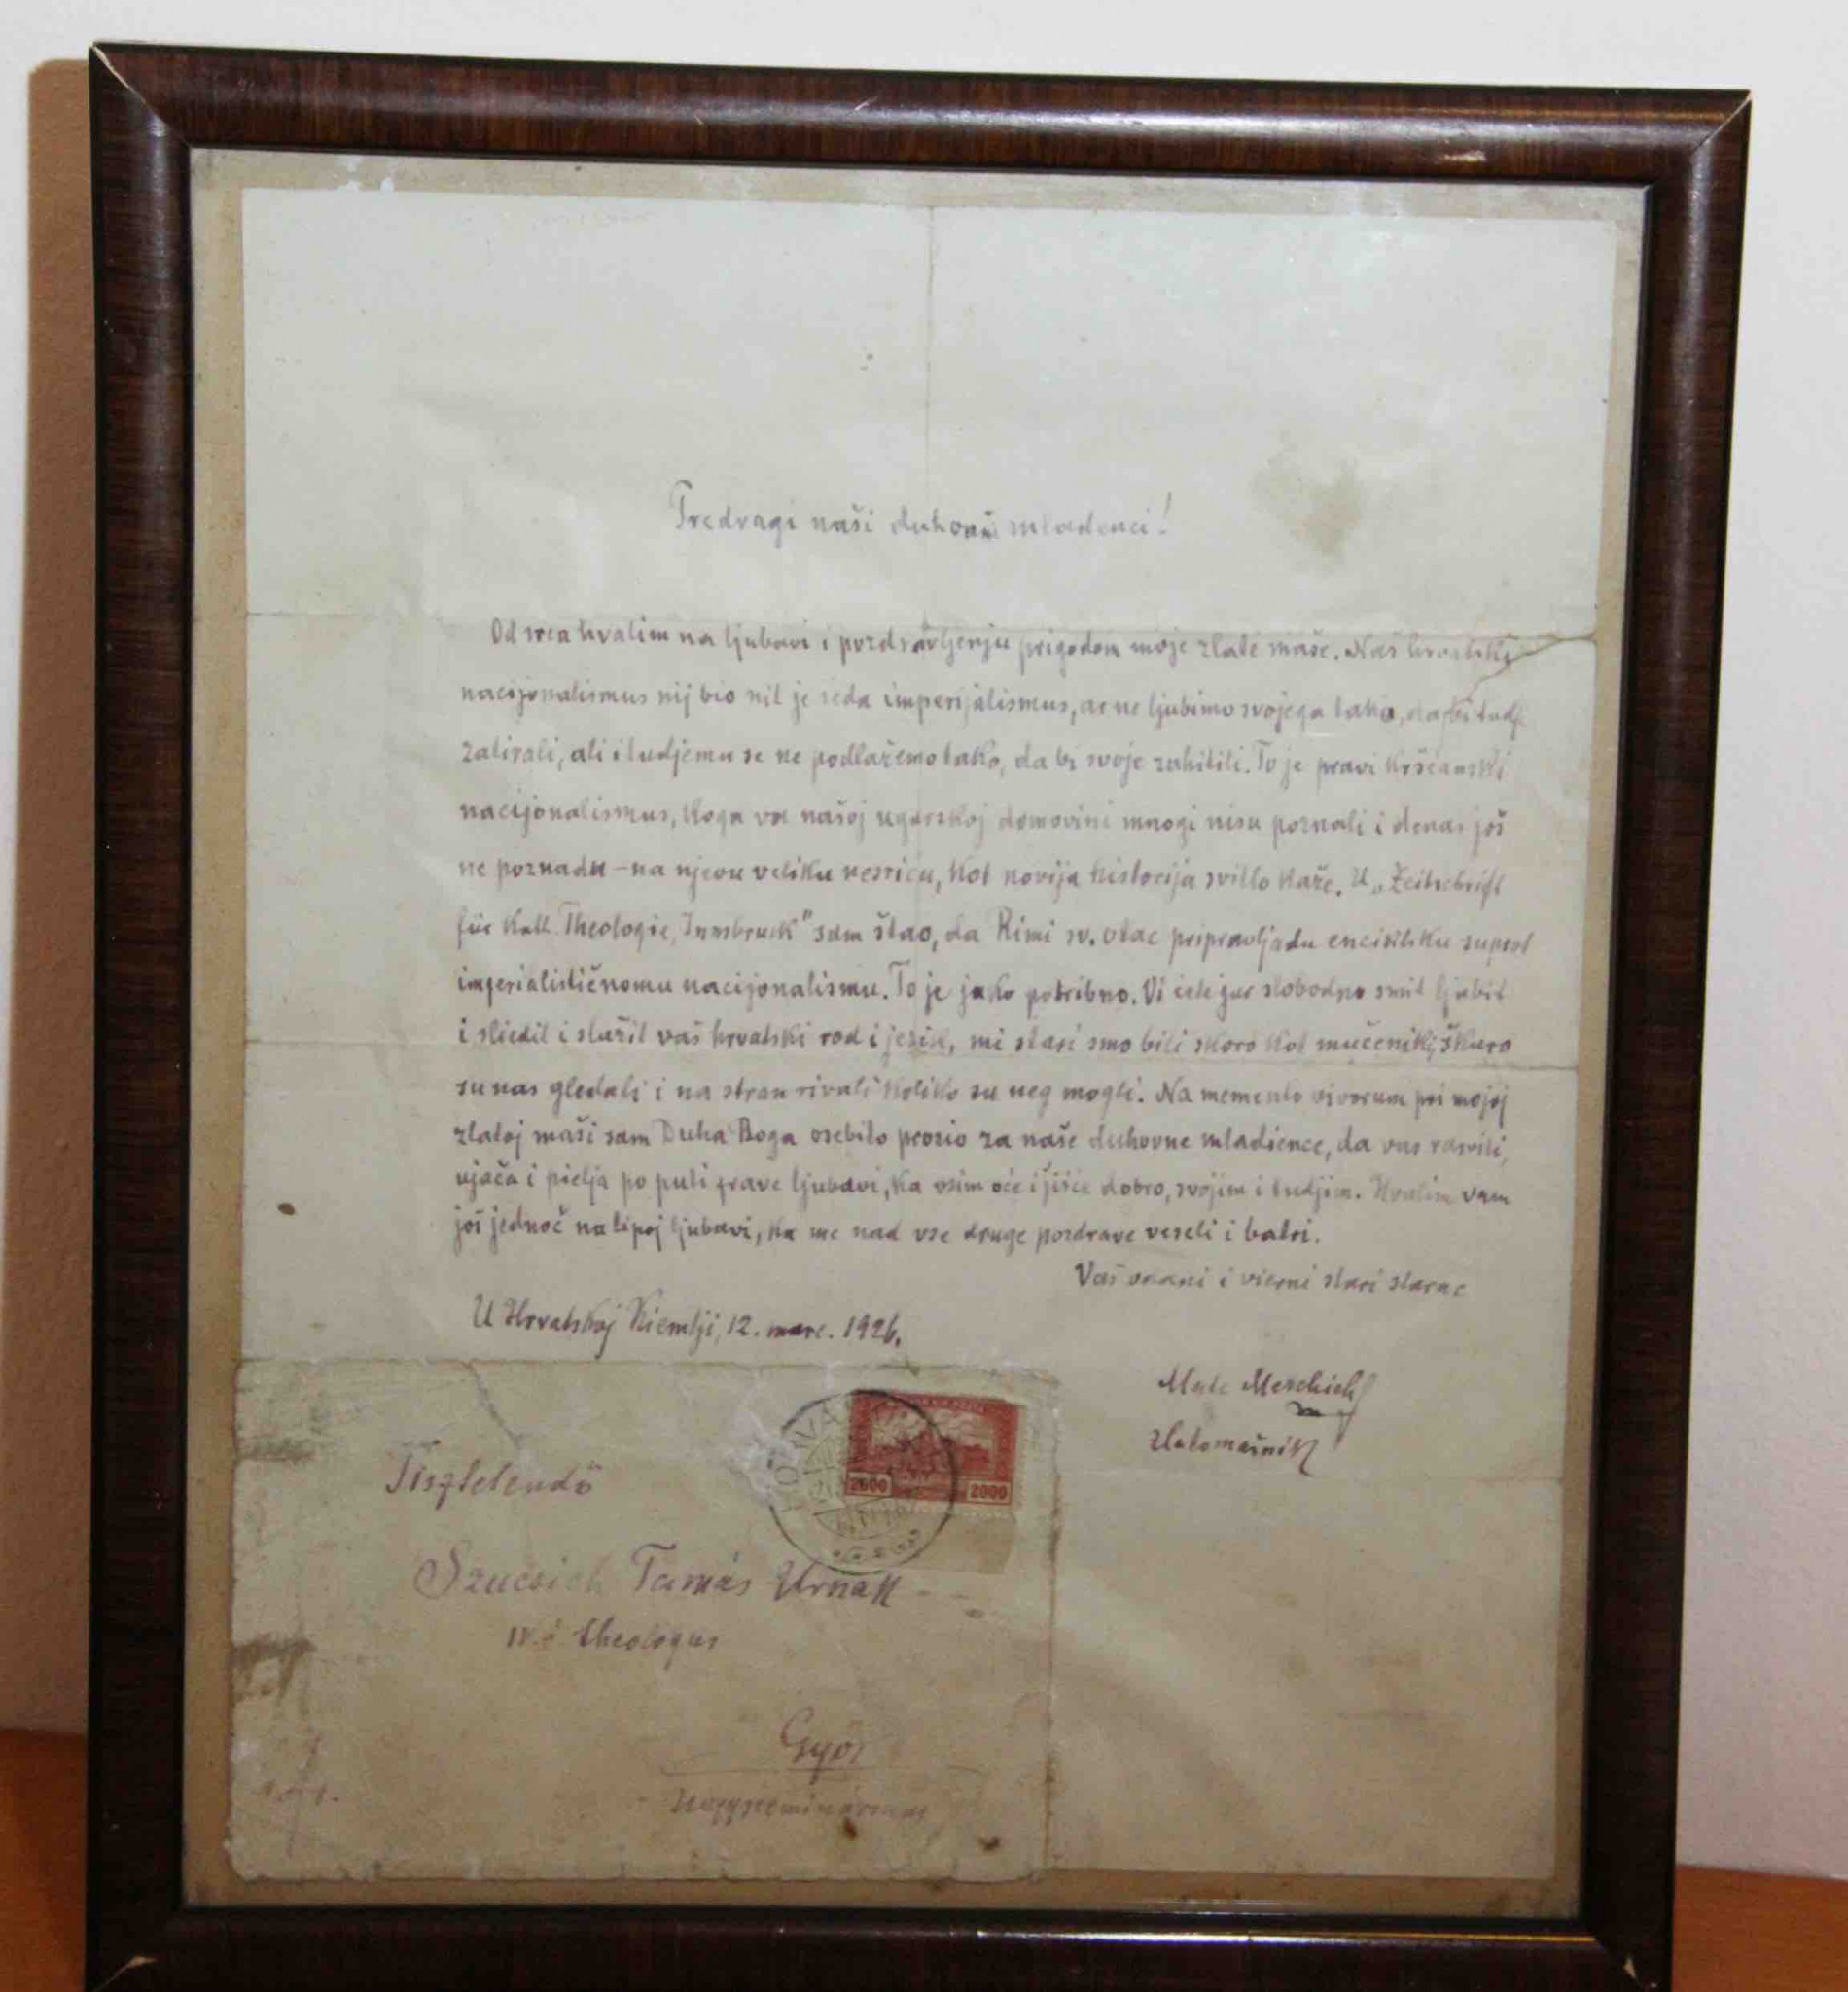 Predragi naši duhovni mladenci!
Od srca hvalim na ljubavi i pozdravljenju prigodom moje zlate maše. Naš hrvatski
nacijonalismus nij bio nit je seda imperijalismus, ar ne ljubimo svojega tako, da bi tudje
zatirali, ali i tudjemu se ne podlažemo tako, da bi svoje zahitili. To je pravi kršćanski
nacijonalismus, koga va našoj ugarskoj domovini mnogi nisu poznali i denas još
ne poznadu – na njevu veliku nesriću, kot novija historija svitlo kaže. U „Zeitschrift
für Kath. Theologie, Innsbruck" sam štao, da Rimi sv. otac pripravljadu encikliku suprot
imperialističnomu nacijonalismu. To je jako potribno. Vi ćete jur slobodno smit ljubit
i sliedit i služit vaš hrvatski rod i jezik, mi stari smo bili skoro kot mučeniki, škuro
su nas gledali i na stran rivali koliko su neg mogli. Na memento vivorum pri mojoj
zlatoj maši sam Duha Boga osebito prosio za naše duhovne mladience, da vas rasviti,
ujača i pielja po puti prave ljubavi, ka vsim oće i jišće dobro, svojim i tudjim. Hvalim vam
još jednoč na lipoj ljubavi, ka me nad vse druge pozdrave veseli i batri.
Vaš udani i vierni stari starac
U Hrvatskoj Kiemlji, 12. marc. 1926.
Mate Merchich
zlatomašnik
Tisztelendő
2000 2000
Szucsich Tamás Urnak
IV. é. theologus
Győr
Nagyseminárium